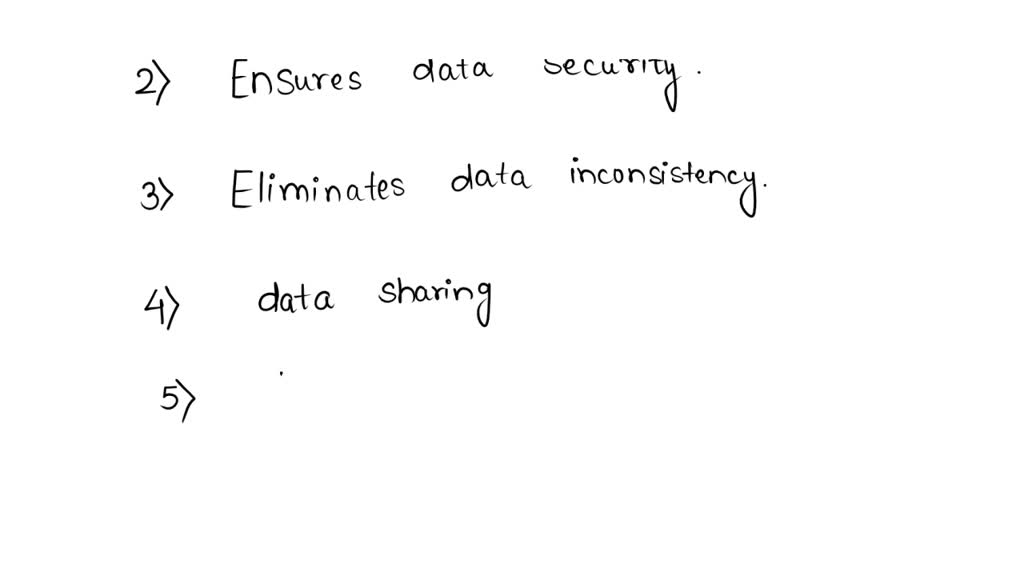 2) Ensures data security.
3) Eliminates data inconsistency.
4) data sharing
5)